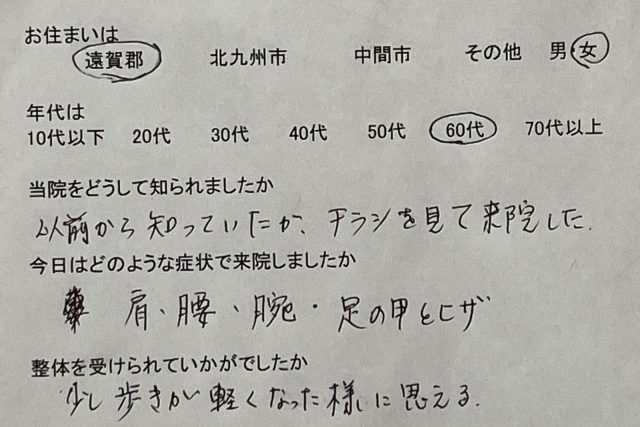 お住まいは
遠賀郡 北九州市 中間市 その他 男 女
年代は
10代以下 20代 30代 40代 50代 60代 70代以上
当院をどうして知られましたか
以前から知っていたが、チラシを見て来院した.
今日はどのような症状で来院しましたか
肩、腰、腕・足の甲とヒザ
整体を受けられていかがでしたか
少し歩きが軽くなった様に思える.